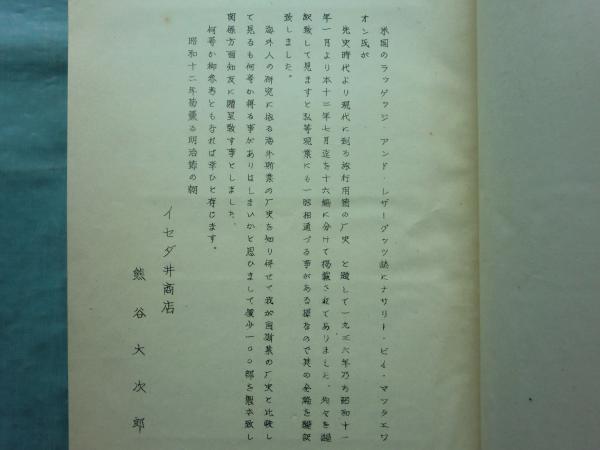 米国のラッゲッジ アンド・レザーグッツ誌にナサリー・ビイ・マツクエワ
オン氏が
先史時代より現代に到る旅行用箇の厂史 と題して一九三六年乃ち昭和十一
年一月より本十二年七月迄を十六編に分けて掲載されてありました、を
訳致して見ますと弘等現業にも一脈相通づる事がある様なので其の全編を飜訳
致しました。
海外人の研究に依る海外斯業の厂史を知り併せて我が国斯業の厂史と比較し
て見るも何等か得る事がありはしまいかと思ひまして僅少一〇〇部を製本致し
関係方面知友に贈呈致す事としました、
何等か御参考ともなれば幸ひと存じます。
昭和十二年菊薫る明治節の朝
イセダ井商店
熊谷大次郎